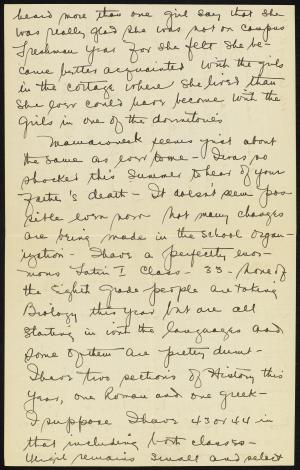 heard more than one girl say that she
was really glad she was not on campus
Freshman year for she felt she be-
came better acquainted with the girls
in the cottage where she lived than
she ever could have become with the
girls in one of the dormitories
Mamaroneck seems just about
the same as ever to me - I was so
shocked this Summer to hear of your
Father's death - It doesn't seem pos-
sible even now Not many changes
are being made in the School organ-
ization - I have a perfectly enor-
mous Latin I Class - 33 - None of
the Eighth Grade people are taking
Biology this year but are all
starting in with the languages and
some of them are pretty dumb -
I have two sections of History this
year, one Roman and one Greek -
I suppose I have 43 or 44 in
that including both classes -
Virgil remains small and select